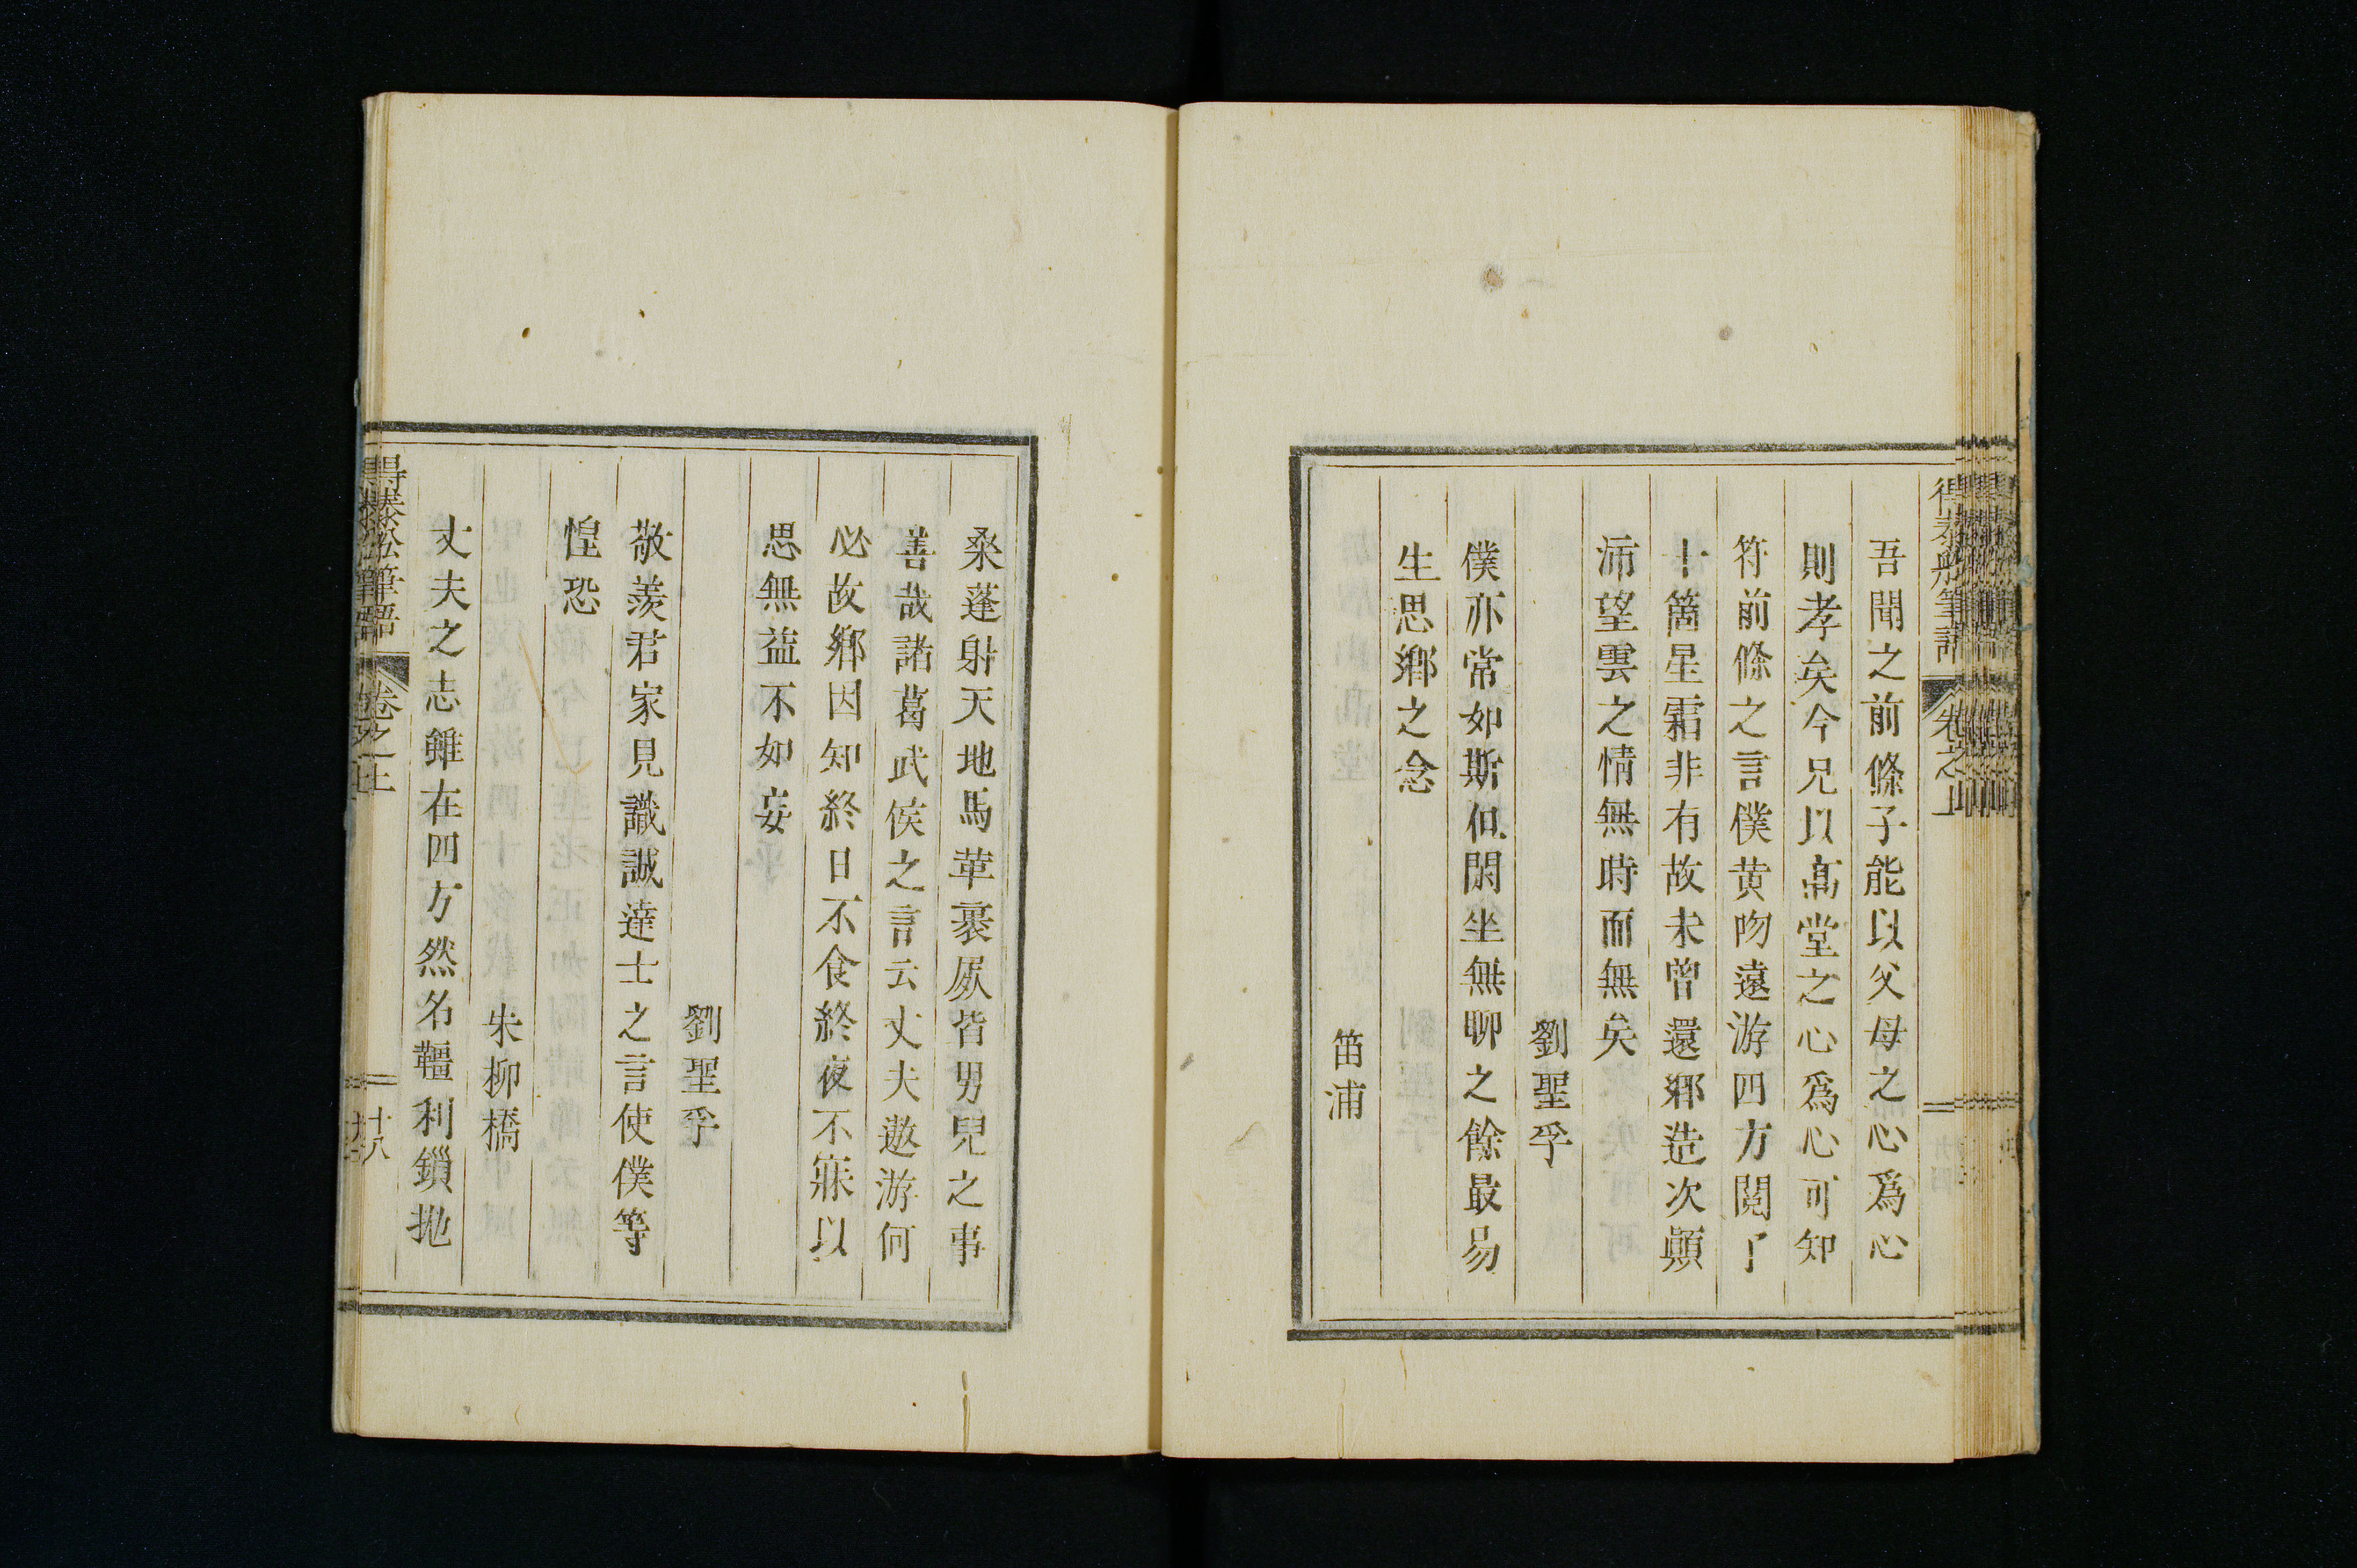 得泰船筆語 卷之上
吾聞之前條子能以父母之心爲心
則孝矣今兄以高堂之心爲心可知
符前條之言僕黄吻遠游四方閲了
十箇星霜非有故未曾還鄉造次顚
沛望雲之情無時而無矣
劉聖孚
僕亦常如斯但閑坐無聊之餘最易
生思鄉之念
笛浦
桒蓬射天地馬革裹屍皆男兒之事
善哉諸葛武侯之言云丈夫遨游何
必故鄉因知終日不食終夜不寐以
思無益不如妄
劉聖孚
敬羨君家見識誠達士之言使僕等
惶恐
朱柳橋
丈夫之志雖在四方然名韁利鎻抛
得泰船筆語 卷之上 十八